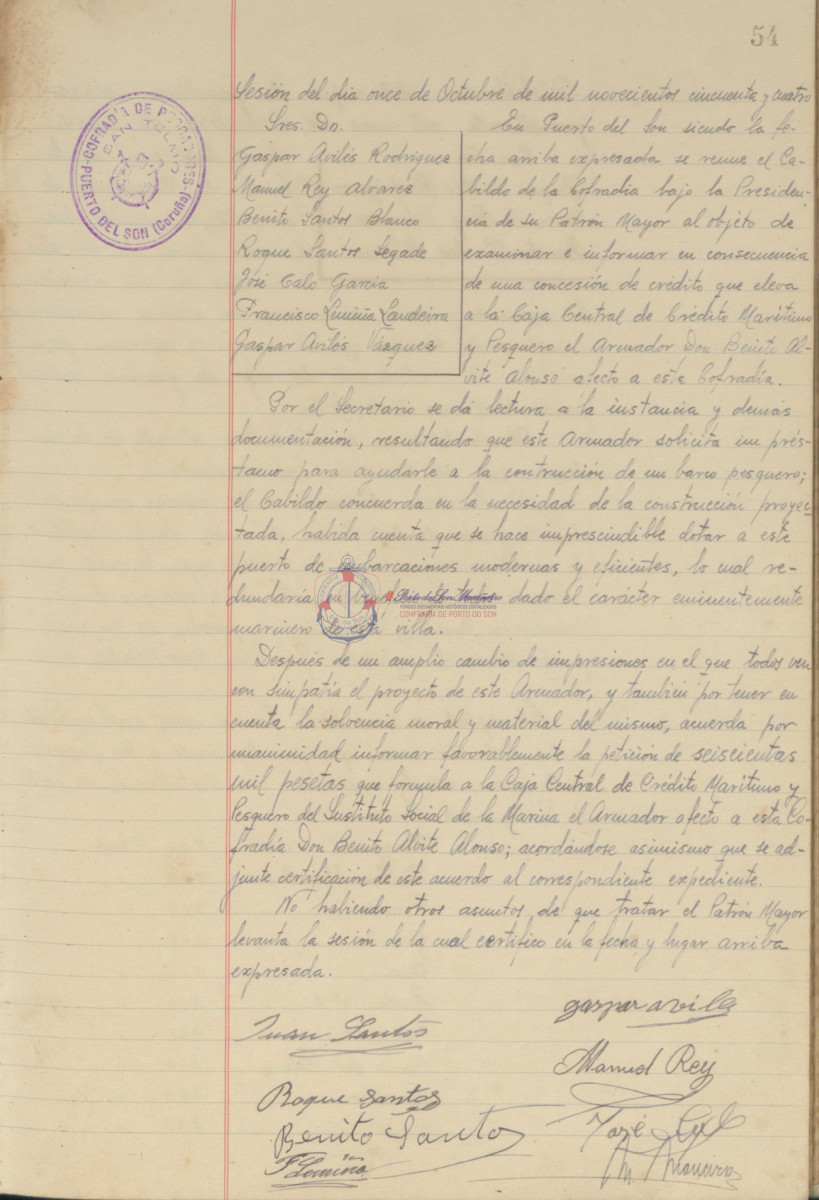 54
Sesión del dia once de Octubre de mil novecientos cincuenta y cuatro
COFRADÍA DE PESCADORES
SAN TELMO
PUERTO DEL SON (Coruña)
Sres. Dn.
Gaspar Avilés Rodriguez
Manuel Rey Alvarez
Benito Santos Blanco
Roque Santos Segade
José Calo Garcia
Francisco Lemiña Landeira
Gaspar Avilés Vázquez
En Puerto del Son siendo la fe-
cha arriba expresada se reune el Ca-
bildo de la Cofradía bajo la Presiden-
cia de su Patrón Mayor al objeto de
examinar e informar en consecuencia
de una concesión de crédito que eleva
a la Caja Central de Crédito Marítimo
y Pesquero el Armador Don Benito Al-
vite Alonso afecto a esta Cofradía.
Por el Secretario se dá lectura a la instancia y demás
documentación, resultando que este Armador solicita un prés-
tamo para ayudarle a la contrucción de un barco pesquero;
el Cabildo concuerda en la necesidad de la construcción proyec-
tada, habida cuenta que se hace imprescindible dotar a este
puerto de embarcaciones modernas y eficientes, lo cual re-
dundaría en dado el carácter eminentemente
marinero de esta villa.
Porto do Son Mariñeiro
FONDOS DOCUMENTAIS HISTÓRICOS DIXITALIZADOS
CONFRARÍA DE PORTO DO SON
Después de un amplio cambio de impresiones en el que todos ven
con simpatía el proyecto de este Armador, y también por tener en
cuenta la solvencia moral y material del mismo, acuerda por
unanimidad informar favorablemente la petición de seiscientas
mil pesetas que formula a la Caja Central de Crédito Marítimo y
Pesquero del Instituto Social de la Marina el Armador afecto a esta Co-
fradía Don Benito Alvite Alonso; acordándose asimismo que se ad-
junte certificación de este acuerdo al correspondiente expediente.
No habiendo otros asuntos de que tratar el Patrón Mayor
levanta la sesión de la cual certifico en la fecha y lugar arriba
expresada.
gaspar avilés
Juan Santos
Manuel Rey
Roque Santos
José Calo
Benito Santos
F. Lemiña